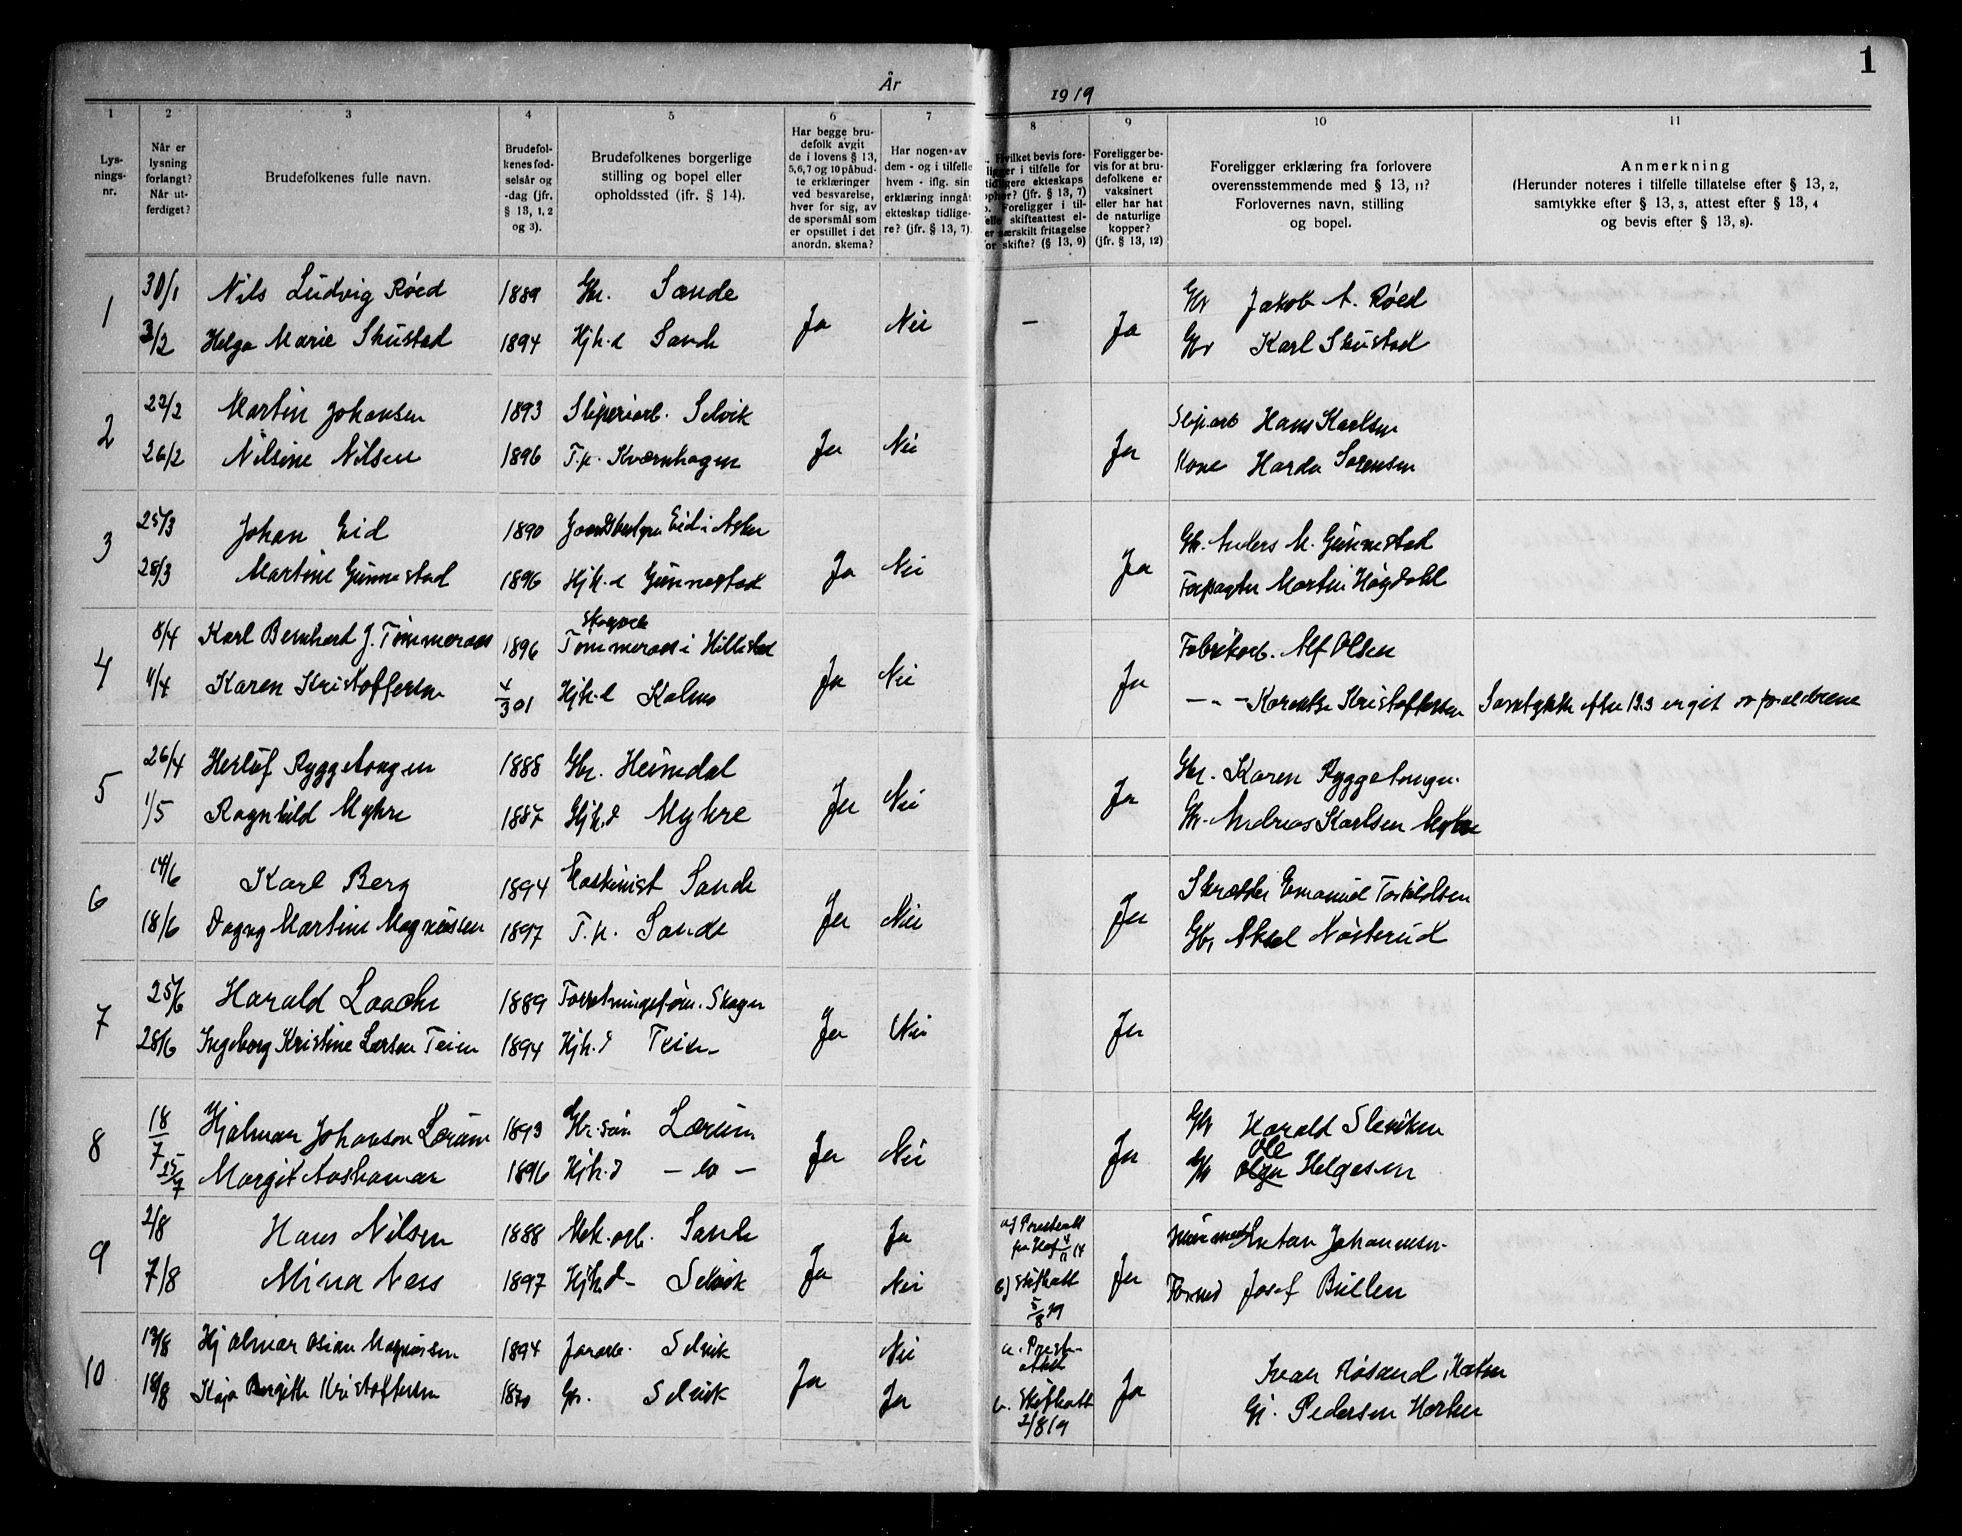 1
År 1919
1 2 3 4 5 6 7 8 9 10 11
Lys-
nings-
nr.
Når er
lysning
forlangt?
Når ut-
ferdiget?
Brudefolkenes fulle navn.
Brudefol-
kenes fød-
selsår og
-dag (jfr.
§ 13, 1, 2
og 3).
Brudefolkenes borgerlige
stilling og bopel eller
opholdssted (ifr. § 14).
Har begge bru-
defolk avgit
de i lovens § 13,
5,6,7 og 10 påbud-
te erklæringer
ved besvarelse,
hver for sig, av
de spørsmål som
er opstillet i det
anordn. skema?
Har nogen av
dem - og i tilfelle
hvem - iflg. sin
erklæring inngåt
ekteskap tidlige-
re? (jfr. § 13, 7).
Hvilket bevis fore-
ligger i tilfelle for
tidligere ekteskaps
ophør? (jfr. § 13, 7)
Foreligger i til-
felle skifteattest el-
ler særskilt fritagelse
for skifte? (§ 13, 9)
Foreligger be-
vis for at bru-
defolkene er
vaksinert
eller har hat
de naturlige
kopper?
(jfr. § 13, 12)
Foreligger erklæring fra forlovere
overensstemmende med § 13, 11?
Forlovernes navn, stilling
og bopel.
Anmerkning
(Herunder noteres i tilfelle tillatelse efter § 13, 2,
samtykke efter § 13, 3, attest efter § 13, 4
og bevis efter § 13, 8).
1 30/1 Nils Ludvig Røed 1889 Gbr. Sande Ja Nei - Ja Gbr Jakob A. Røed
3/2 Helga Marie Skustad 1894 Hjh.d Sande Gbr Karl Skustad
2 22/2 Martin Johansen 1893 Sliperiarb. Selvik Ja Nei Ja Sliparb Hans Karlsen
26/2 Nilsine Nilsen 1896 T.p. Kværnhagen Kone Harda Sørensen
3 25/3 Johan Eid 1890 Gaardbestyrer Eid i Asker Ja Nei Ja Gbr. Anders M. Gunnestad
28/3 Martine Gunnestad 1896 Hjh.d Gunnestad Forpagter Martin Høgdahl
4 8/4 Karl Bernhard J. Tømmeraas 1896 Tømmeraas i Hillestad Ja Nei Ja Fabrikarb. Alf Olsen
11/4 Karen Kristoffersen 4/3 01 Hjh.d Kolmo - " - Kristoffersen Samtykke efter 13.3 er git av forældrene
5 26/4 Herluf Ryggetangen 1888 Gbr. Heimdal Ja Nei Ja Gbr. Karen Ryggetangen
1/5 Ragnhild Myhre 1887 Hjh.d Myhre Gbr. Andreas Karlsen Myhre
6 14/6 Karl Berg 1894 Maskinist Sande Ja Nei Ja Skrædder Emanuel Torkildsen
18/6 Dagny Martine Magnussen 1897 T.p. Sande Gbr Aksel Nøsterud
7 25/6 Harald Laache 1889 Forretningsfører. Skagen Ja Nei Ja
28/6 Ingeborg Kristine Larsen Teien 1894 Hjh.d Teien
8 18/7 Hjalmar Johansen Lærum 1893 Gbr.søn Lærum Ja Nei Ja Gbr Harald Sleviken
25/7 Margit Aashamar 1896 Hjh.d - do - Gbr Ole Helgesen
9 2/8 Hans Nilsen 1888 Mek. arb. Sande Ja Ja a) Presteatt fra Hof 4/11 14 Ja Anton Johannesen
7/8 Mina Næss 1897 Hjh.d - Selvik Nei b) Skifteatt 5/8 19 Formd Josef Bullen
10 13/8 Hjalmar Osian Magnussen 1894 Jarnarb. Selvik Ja Nei a. Presteattest Ja Ivar Røsand,
18/8 Kaja Bergitte Kristoffersen 1870 Selvik Ja b. Skifteatt 2/8 19 Gj. Pedersen